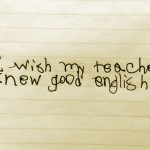 I wish my teache
knew good english